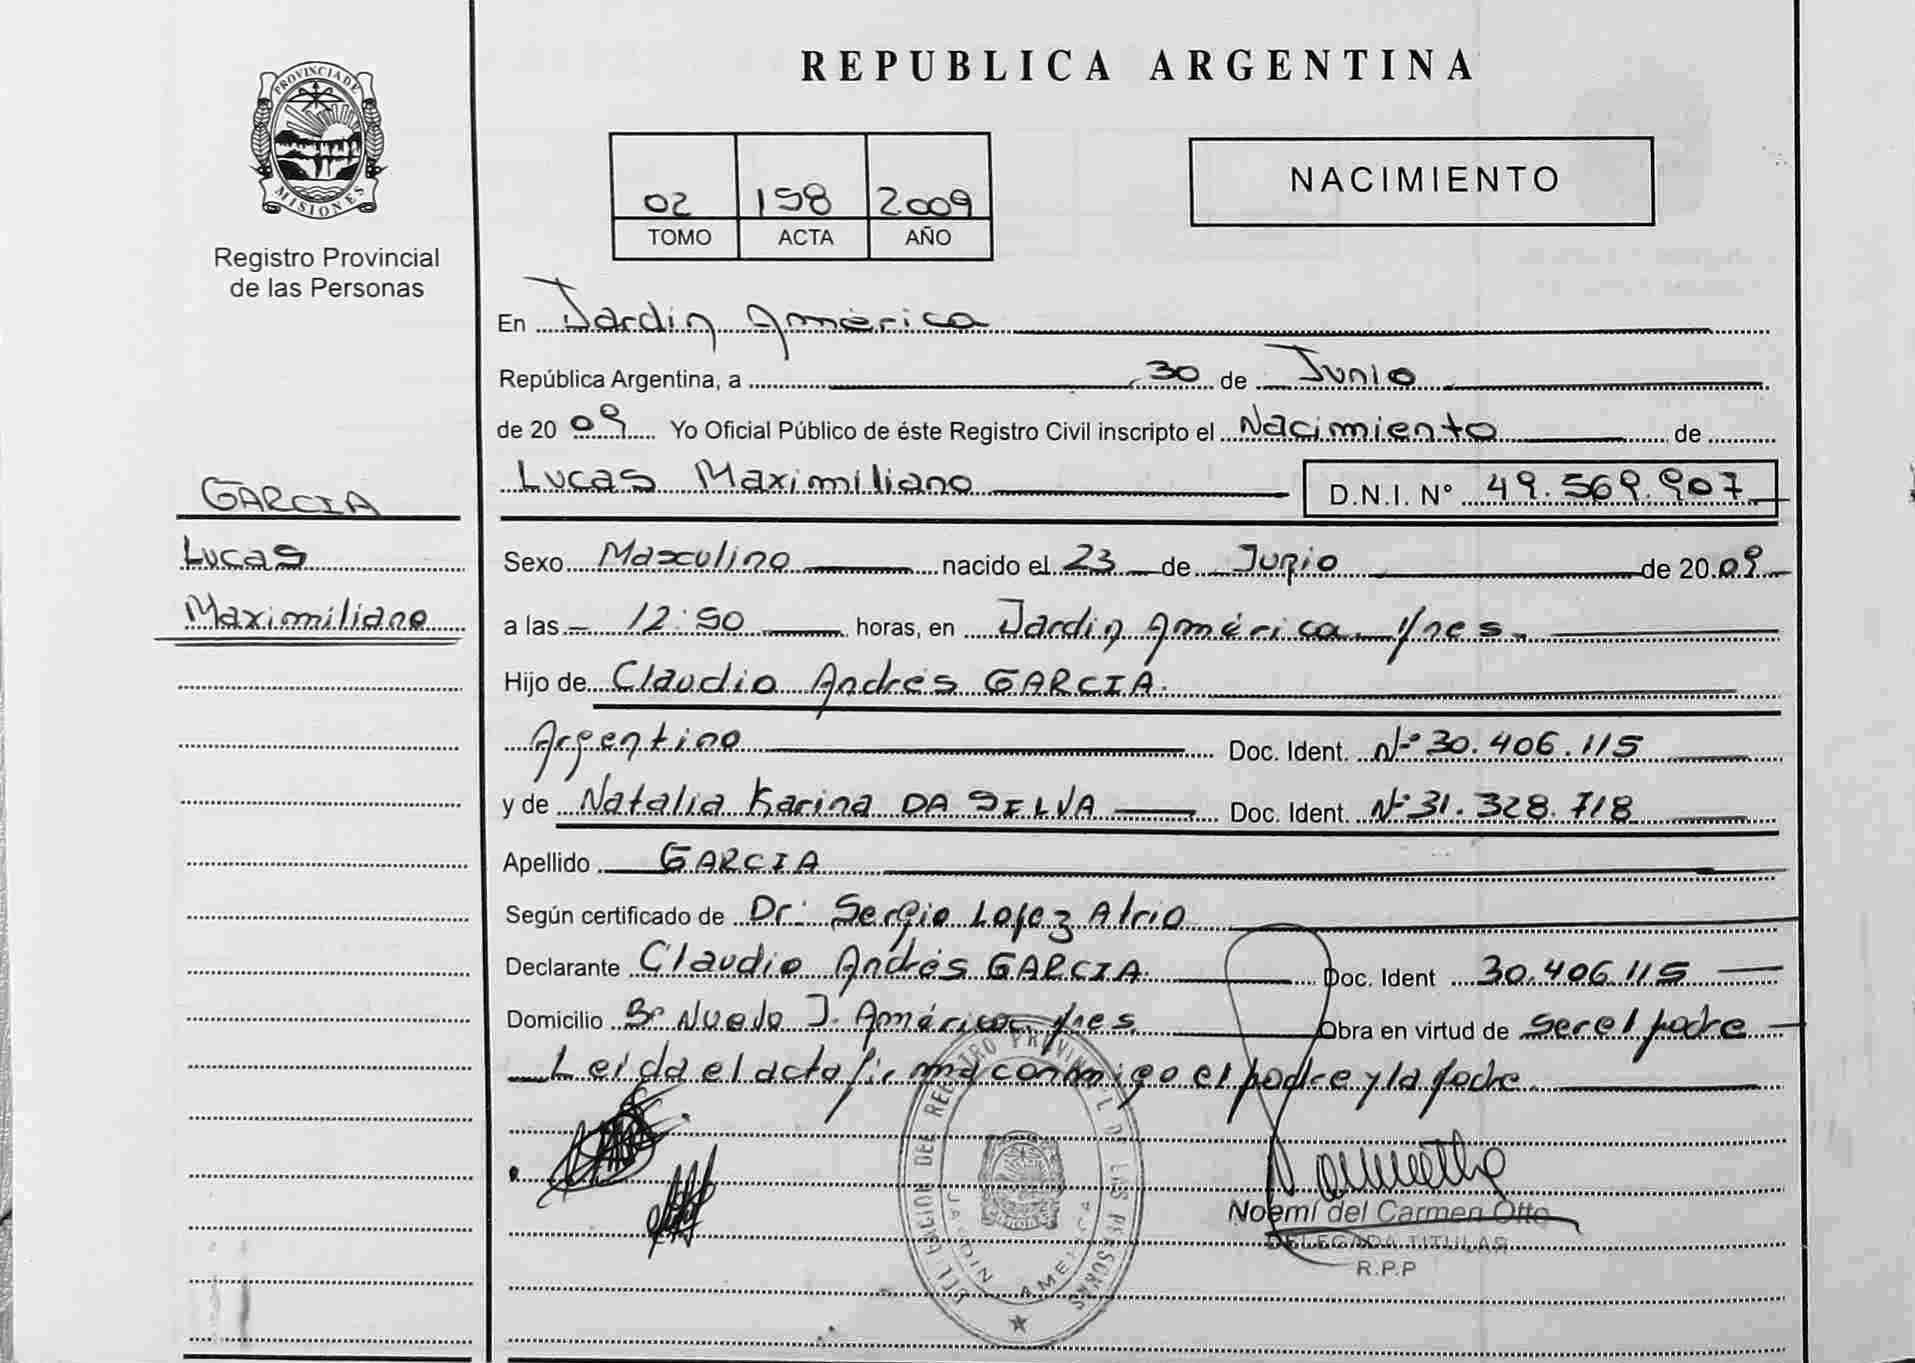 REPUBLICA ARGENTINA
PROVINCIA DE
MISIONES
Registro Provincial
de las Personas
02 158 2009
TOMO ACTA AÑO
NACIMIENTO
En Jardin América
República Argentina, a 30 de Junio
de 2009 Yo Oficial Público de éste Registro Civil inscripto el Nacimiento de
GARCIA
Lucas
Maximiliano
Lucas Maximiliano D.N.I. N° 49.569.907
Sexo Masculino nacido el 23 de Junio de 2009
a las 12:50 horas, en Jardin América
Hijo de Claudio Andrés GARCIA.
Argentino Doc. Ident. Nº 30.406.115
y de Natalia Karina DA SILVA Doc. Ident. Nº 31.328.718
Apellido GARCIA
Según certificado de Dr: Sergio Lopez
Declarante Claudio Andrés GARCIA. Doc. Ident 30.406.115
Domicilio Bº Nuevo J. América Obra en virtud de ser el padre
Leida el acta firma conmigo el padre y la
DELEGACION DE REGISTRO PROVINCIAL DE LAS PERSONAS
JARDIN AMERICA
Noemí del Carmen Otto
DELEGADA TITULAR
R.P.P